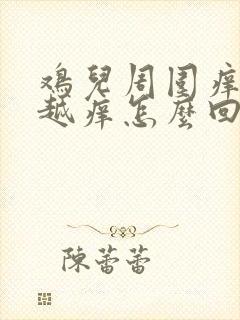 鸡兒周围痒
越痒怎麼回
陳蕾蕾